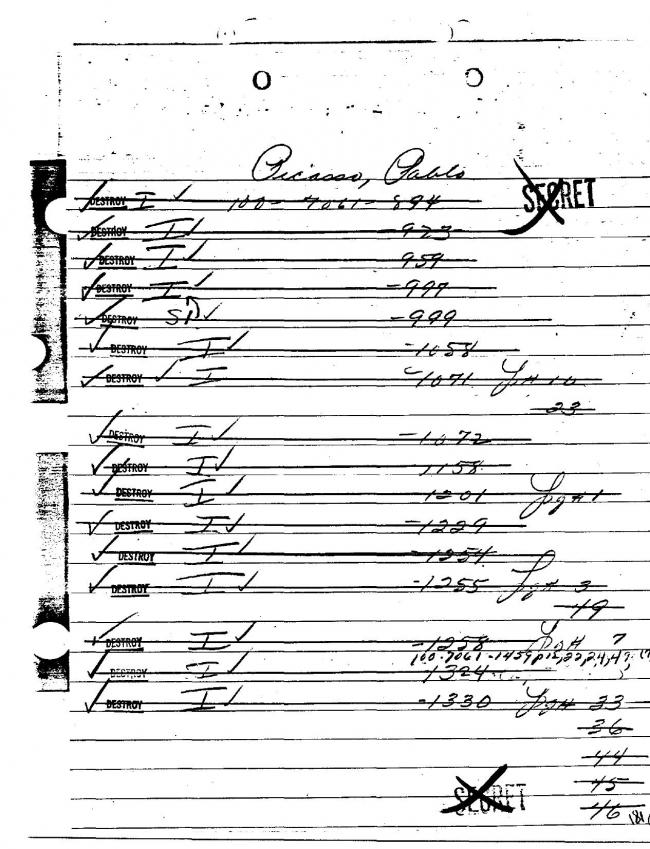 Picasso, Pablo
SECRET
DESTROY I 100-7061-894
DESTROY I -923
DESTROY I 959
DESTROY I -997
DESTROY SI -999
DESTROY I -1058
DESTROY I -1071 10
23
DESTROY I -1072
DESTROY I 1158
DESTROY I 1201 pg # 1
DESTROY I -1229
DESTROY I -1254
DESTROY I -1255 pg # 3
49
DESTROY I -1258 pg # 7
100-7061-1459 p15,22,24,47
DESTROY I 1324
DESTROY I -1330 pg # 33
36
44
45
SECRET
46